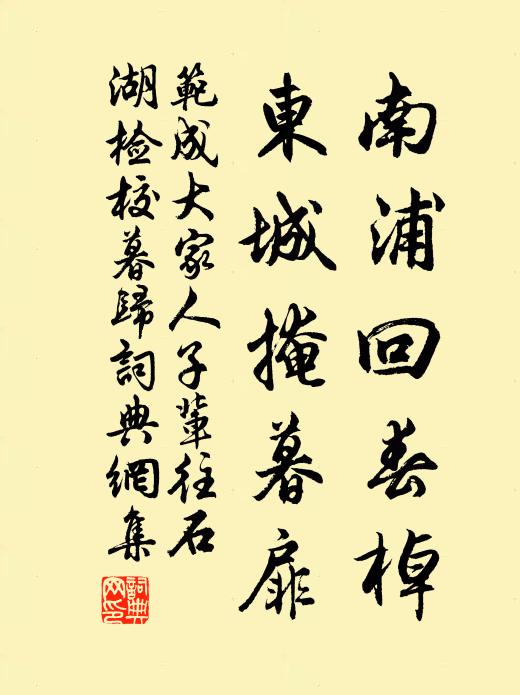 南浦回春棹
東城掩暮扉
範成大家人子輩往石
湖檢校暮歸詞典網集